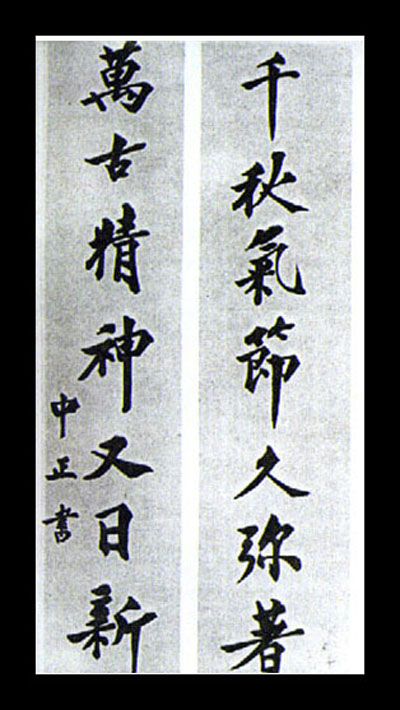 千秋氣節久弥著
萬古精神又日新
中正書